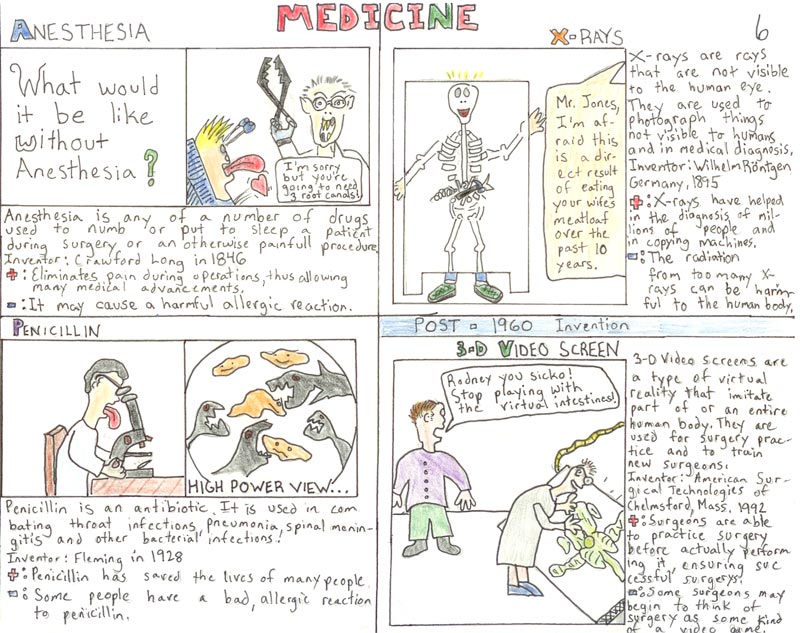 MEDICINE
6
ANESTHESIA
What would
it be like
without
Anesthesia?
I'm sorry
but you're
going to need
3 root canals!
Anesthesia is any of a number of drugs
used to numb or put to sleep a patient
during surgery or an otherwise painfull procedure.
Inventor: Crawford Long in 1846
+: Eliminates pain during operations, thus allowing
many medical advancements.
-: It may cause a harmful allergic reaction.
X-RAYS
Mr. Jones,
I'm af-
raid this
is a dir-
ect result
of eating
your wife's
meatloaf
over the
past 10
years.
X-rays are rays
that are not visible
to the human eye.
They are used to
photograph things
not visible to humans
and in medical diagnosis.
Inventor: Wilhelm Röntgen
Germany, 1895
+: X-rays have helped
in the diagnosis of mil-
lions of people and
in copying machines.
-: The radiation
from too many X-
rays can be harm-
ful to the human body.
PENICILLIN
HIGH POWER VIEW...
Penicillin is an antibiotic. It is used in com
bating throat infections, pneumonia, spinal menin-
gitis and other bacterial infections.
Inventor: Fleming in 1928
+: Penicillin has saved the lives of many people.
-: Some people have a bad, allergic reaction
to penicillin.
POST-1960 Invention
3-D VIDEO SCREEN
Rodney you sicko!
Stop playing with
the virtual intestines!
3-D Video screens are
a type of virtual
reality that imitate
part of or an entire
human body. They are
used for surgery prac-
tice and to train
new surgeons.
Inventor: American Sur-
gical Technologies of
Chelmsford, Mass. 1992
+: Surgeons are able
to practice surgery
before actually perform
ing it, ensuring suc
cessful surgerys.
-: Some surgeons may
begin to think of
surgery as some kind
of a video game.